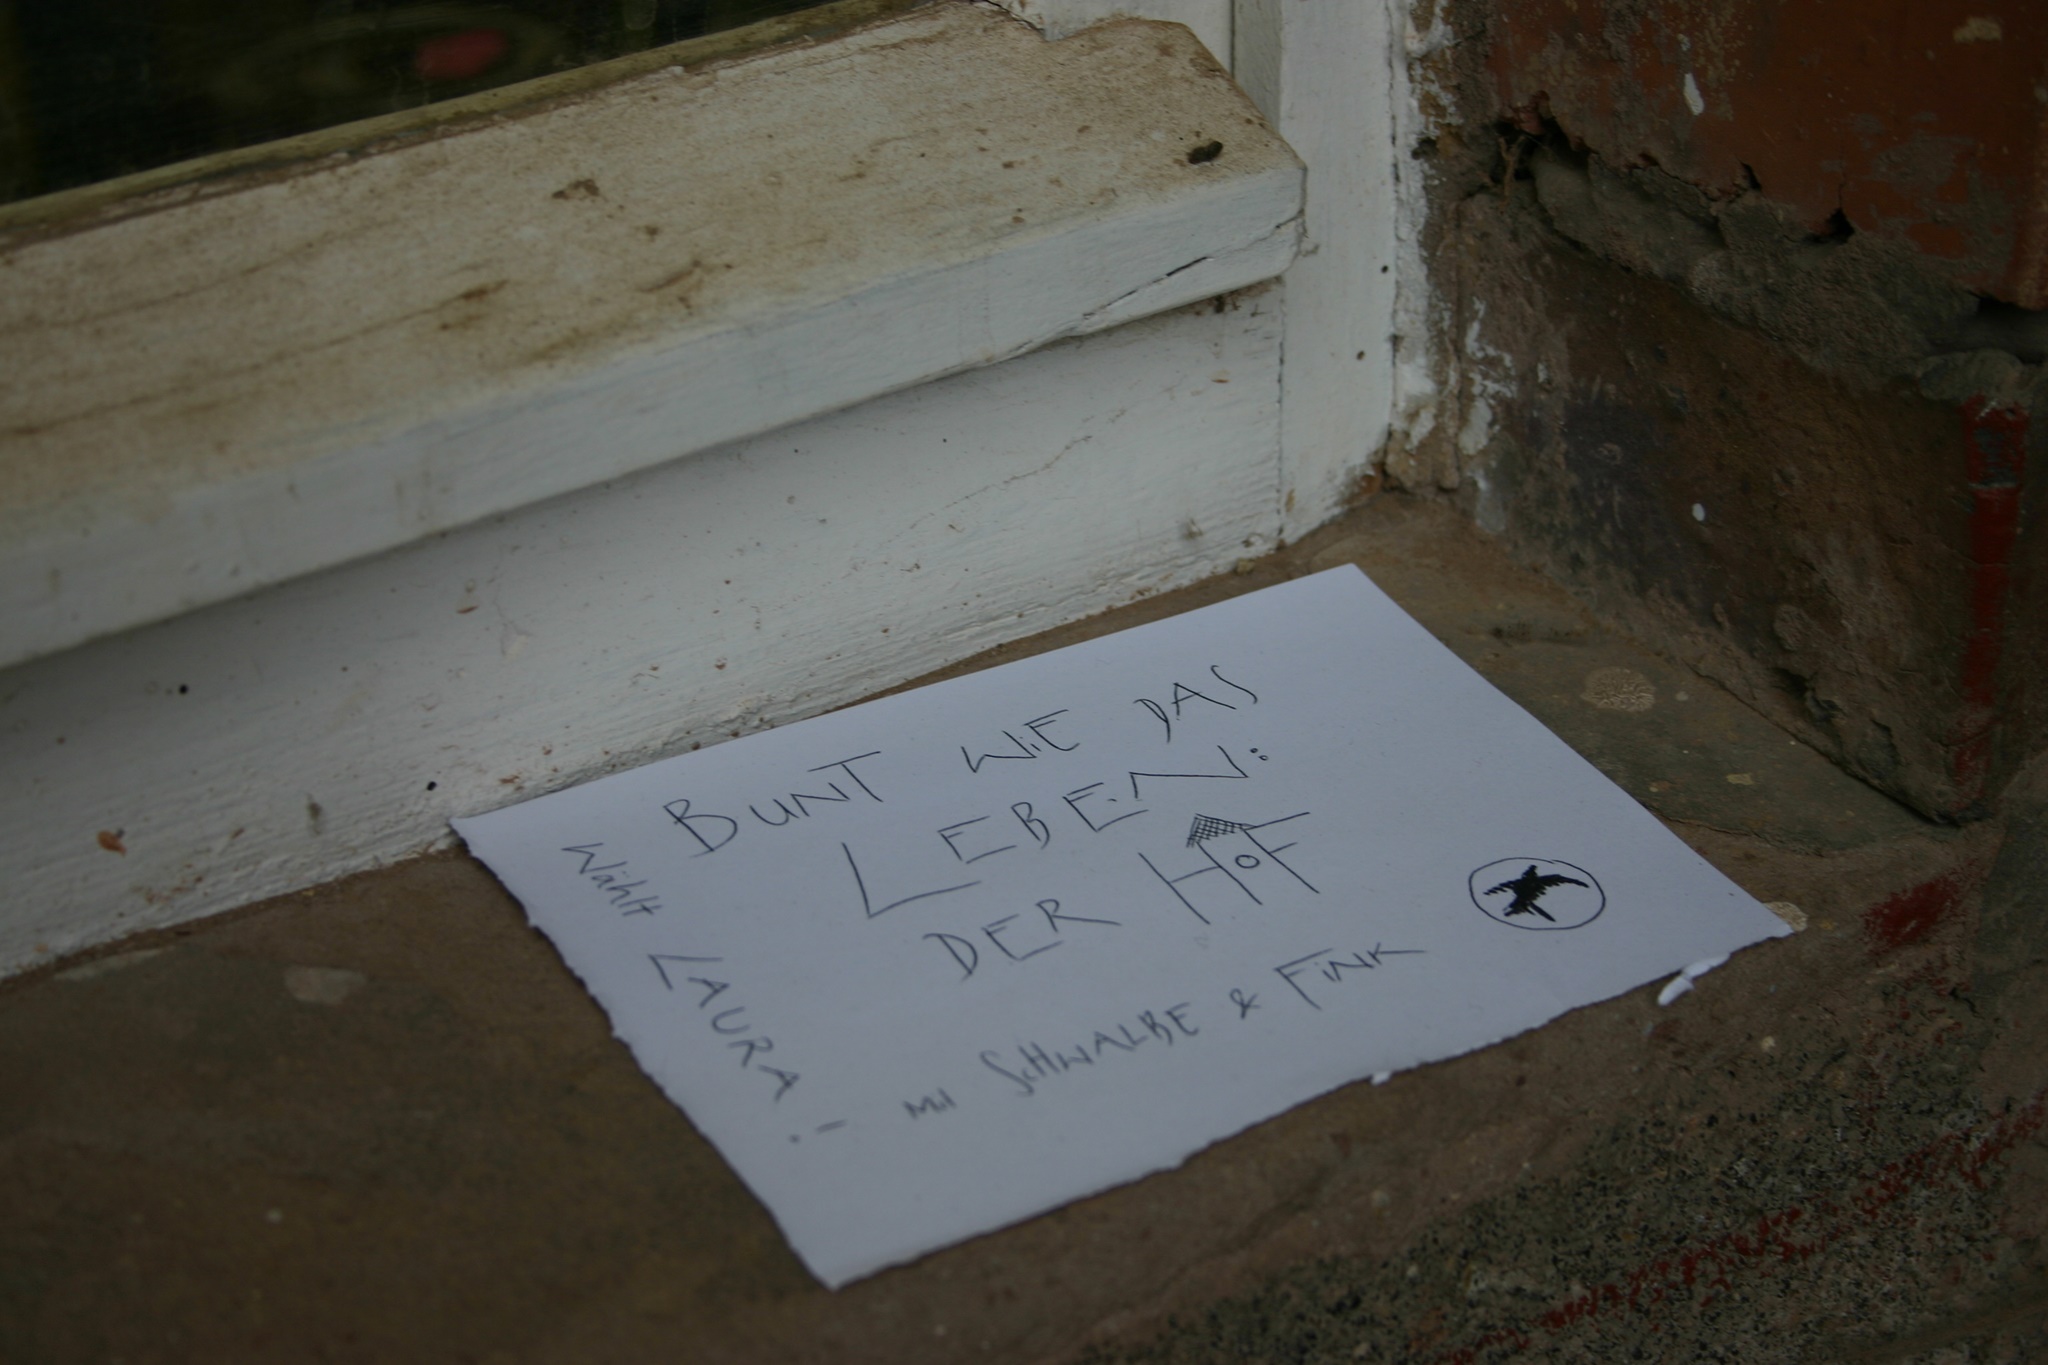 BUNT WIE DAS
LEBEN:
DER HOF
MIT SCHWALBE & FINK
Wählt LAURA!